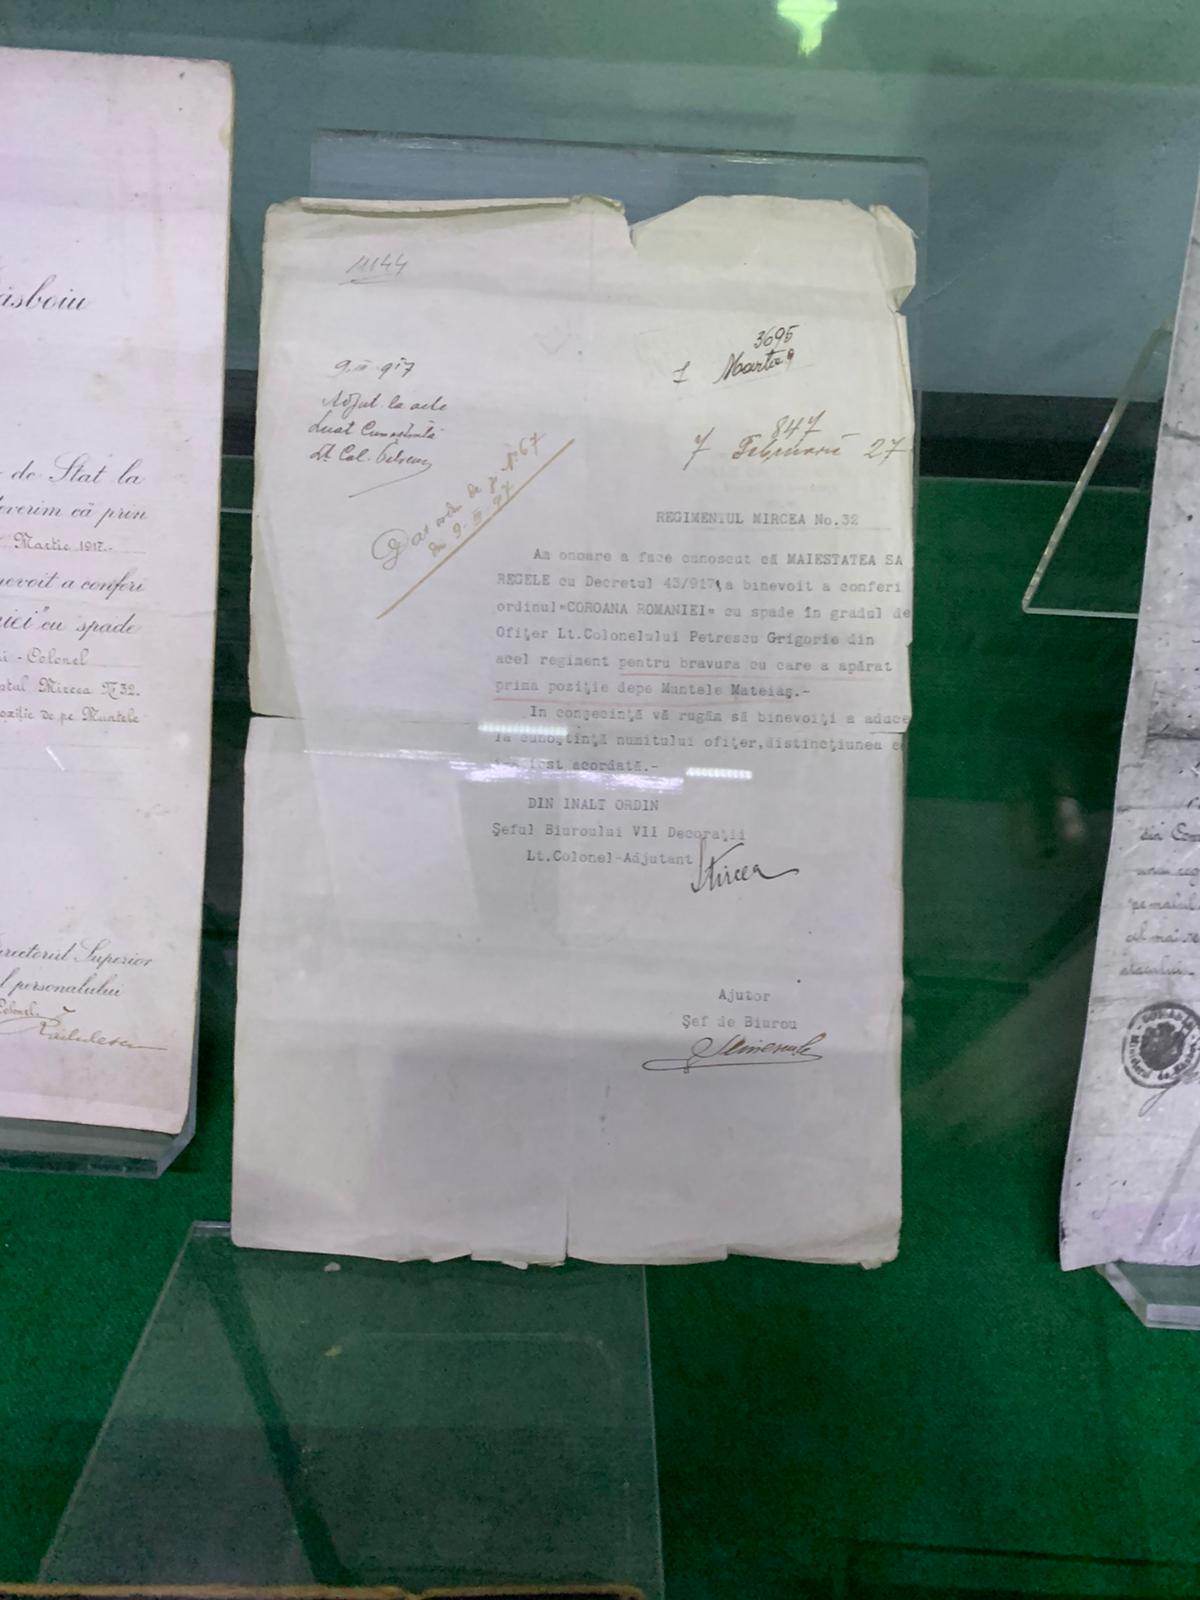 ăsboiu
de Stat la
deverim că prin
Martie 1917.-
nevoit a conferi
niei" cu spade
- Colonel
Mircea No 32.
poziție de pe Muntele
Directorul Superior
l personalului
Colonel
3695
1 Martie 9
9.III.917
la acte
Lt. Col.
847
7 Februarie 27
de zi No 67
din 9.III.917
REGIMENTUL MIRCEA No.32
Am onoare a face cunoscut că MAIESTATEA SA
REGELE cu Decretul 43/917, a binevoit a conferi
ordinul "COROANA ROMANIEI" cu spade în gradul de
Ofițer Lt.Colonelului Petrescu Grigorie din
acel regiment pentru bravura cu care a apărat
prima poziție depe Muntele Mateiaș.-
In consecință vă rugăm să binevoiți a aduce
la cunoștință numitului ofițer, distincțiunea ce
fost acordată.-
DIN INALT ORDIN
Șeful Biuroului VII Decorații
Lt.Colonel-Adjutant
Ajutor
Șef de Biurou
din
pe malul